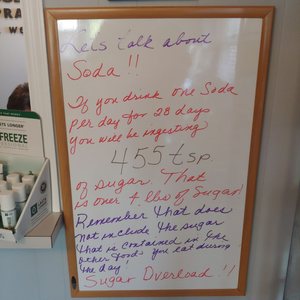 RA
We
LONGER
FREEZE
Lets talk about
Soda !!
If you drink one Soda
per day for 28 days
you will be ingesting
455 tsp.
of sugar. That
is over 4 lbs of Sugar!
Remember that does
not include the sugar
that is contained in the
other foods you eat during
the day!
Sugar Overload !!